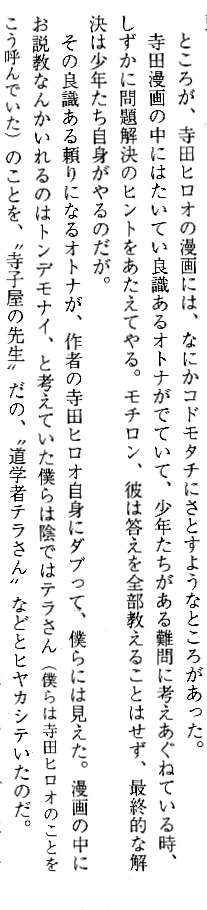 ところが、寺田ヒロオの漫画には、なにかコドモタチにさとすようなところがあった。
寺田漫画の中にはたいてい良識あるオトナがでていて、少年たちがある難問に考えあぐねている時、
しずかに問題解決のヒントをあたえてやる。モチロン、彼は答えを全部教えることはせず、最終的な解
決は少年たち自身がやるのだが。
その良識ある頼りになるオトナが、作者の寺田ヒロオ自身にダブって、僕らには見えた。漫画の中に
お説教なんかいれるのはトンデモナイ、と考えていた僕らは陰ではテラさん（僕らは寺田ヒロオのことを
こう呼んでいた）のことを、〝寺子屋の先生〟だの、〝道学者テラさん〟などとヒヤカシテいたのだ。